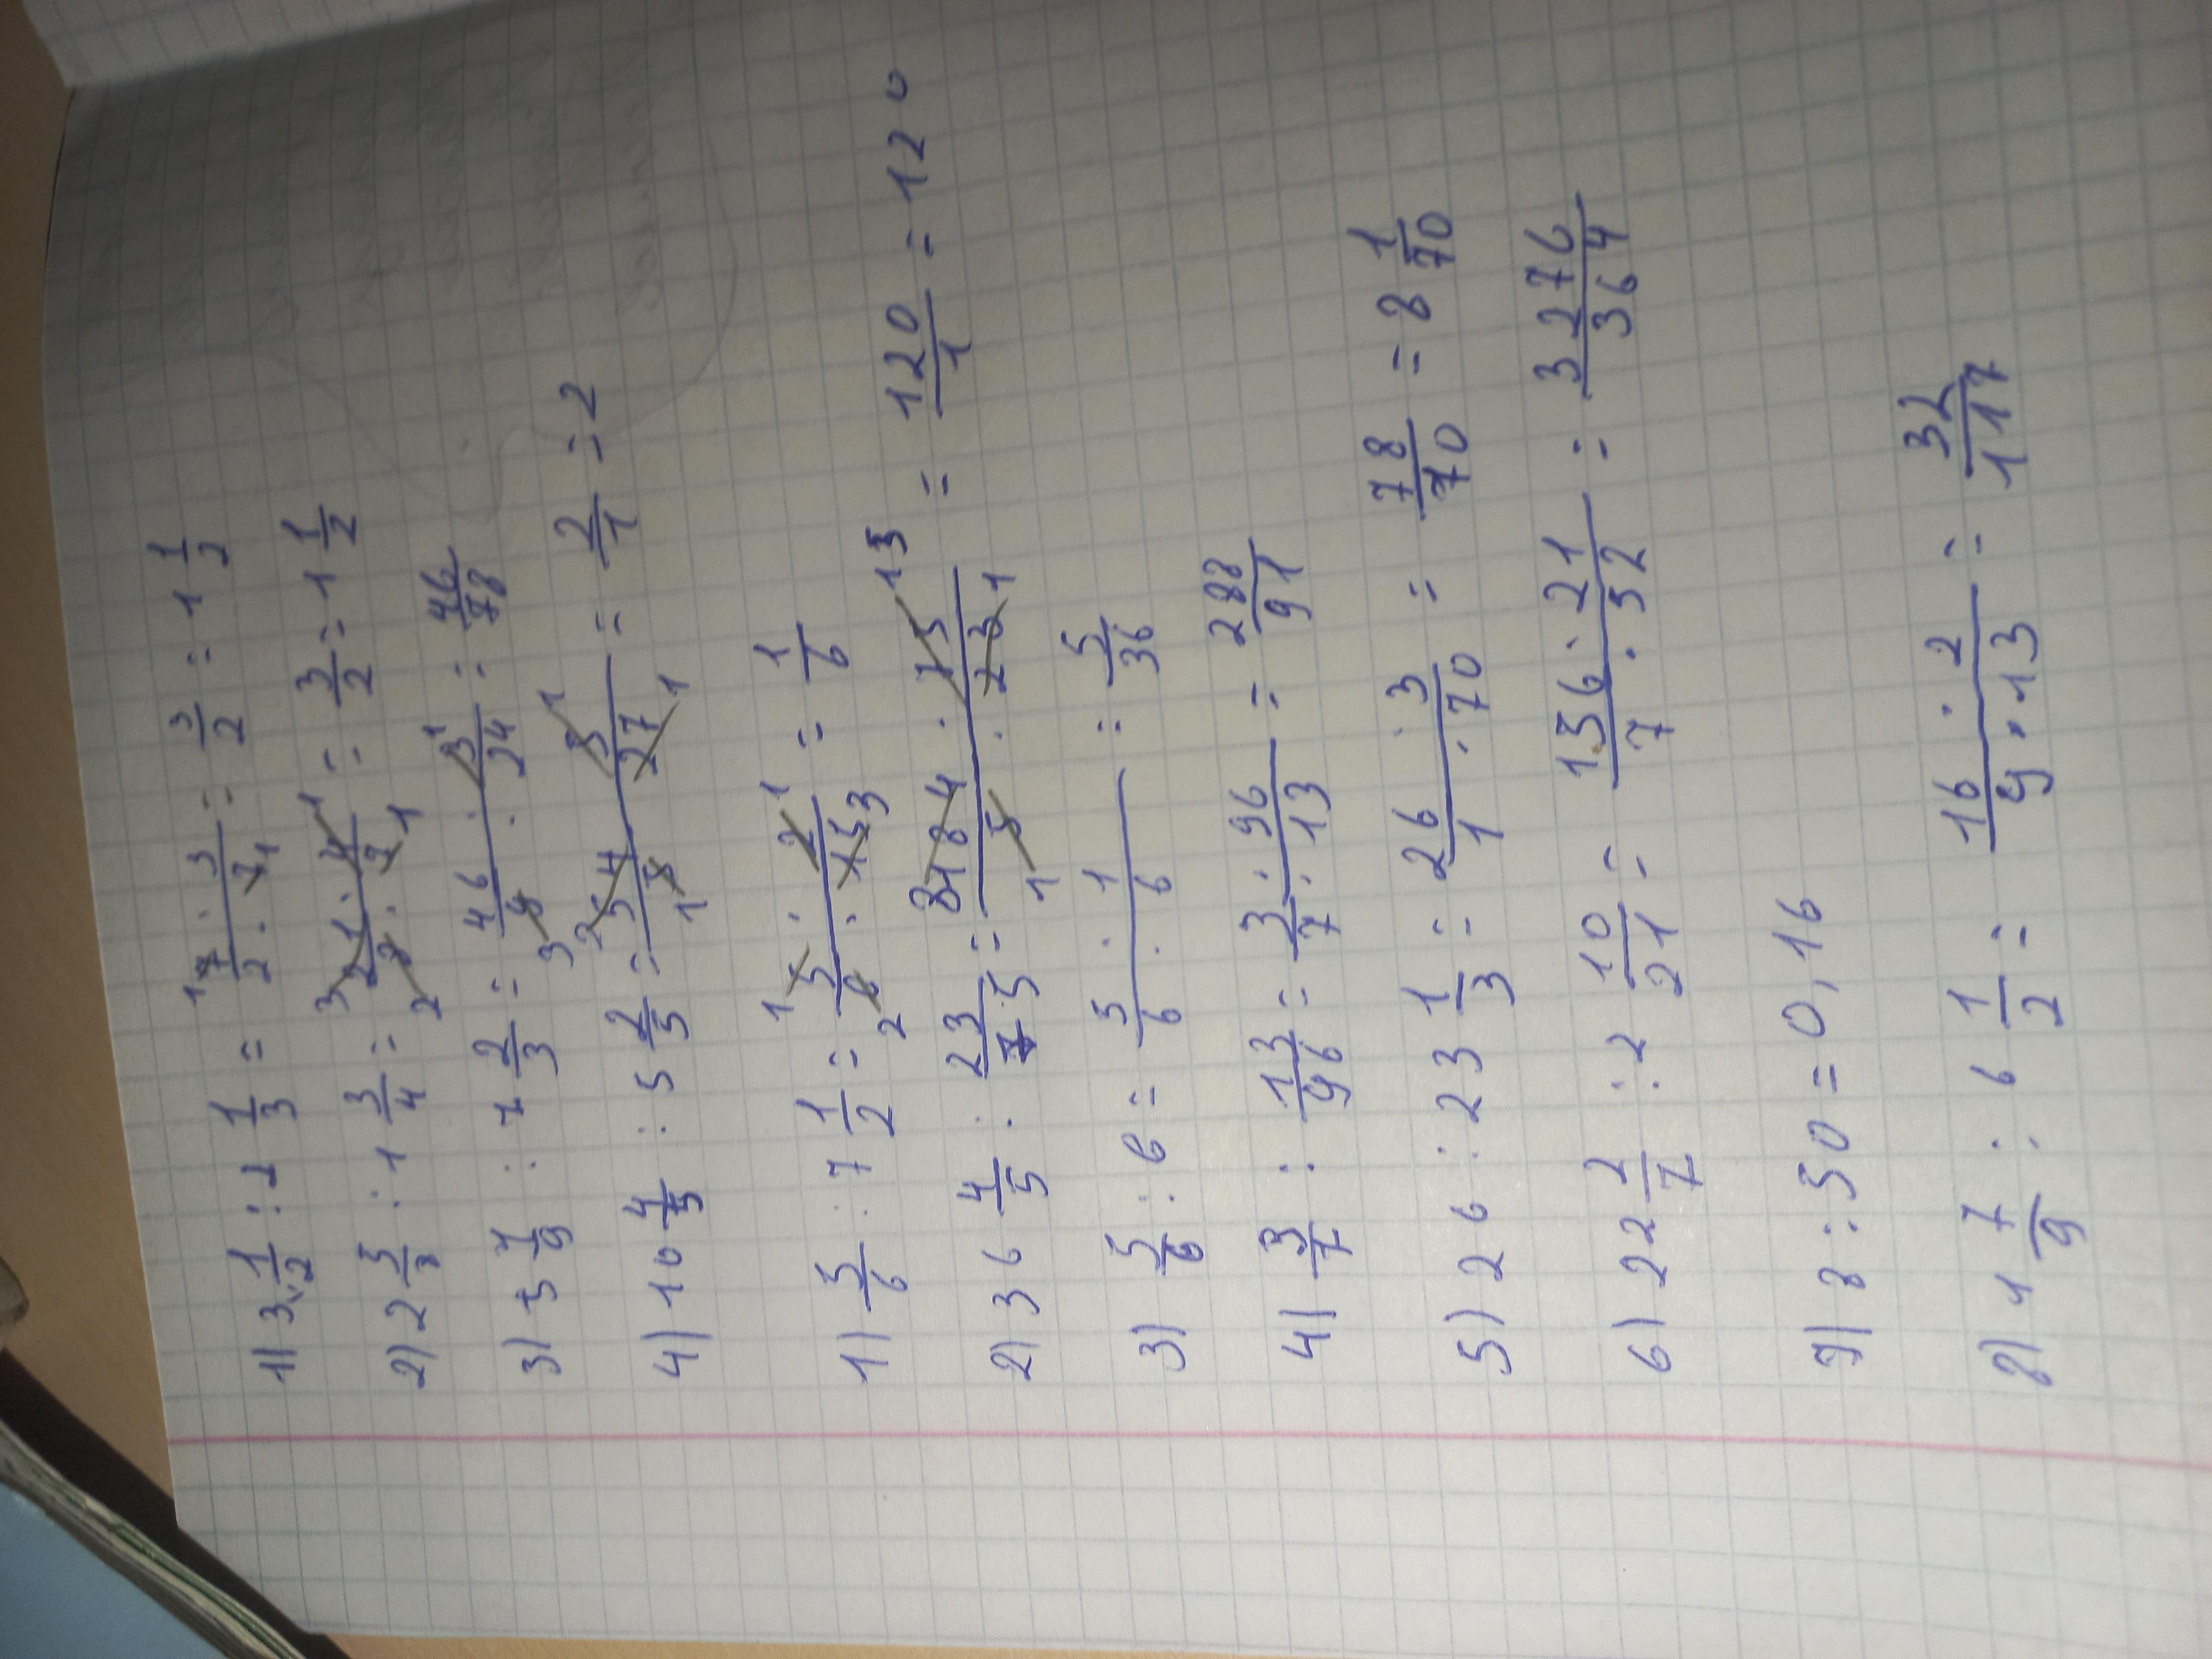 1) 3 1/2 : 2 1/3 = 7·3/2·7 = 3/2 = 1 1/2
2) 2 5/8 : 1 3/4 = 21·4/8·7 = 3/2 = 1 1/2
3) 5 1/9 : 7 2/3 = 46/9 · 3/24 = 46/78
4) 10 4/5 : 5 2/5 = 54·5/5·27 = 2/1 = 2
1) 5/6 : 7 1/2 = 5·2/6·15 = 1/6
2) 36 4/5 : 23/75 = 184·75/5·23 = 120/1 = 120
3) 5/6 : 6 = 5·1/6·6 = 5/36
4) 3/7 : 13/96 = 3·96/7·13 = 288/91
5) 26 : 23 1/3 = 26·3/1·70 = 78/70 = 8 1/70
6) 22 2/7 : 2 10/21 = 156·21/7·52 = 3276/364
7) 8 : 50 = 0,16
8) 1 7/9 : 6 1/2 = 16·2/9·13 = 32/117